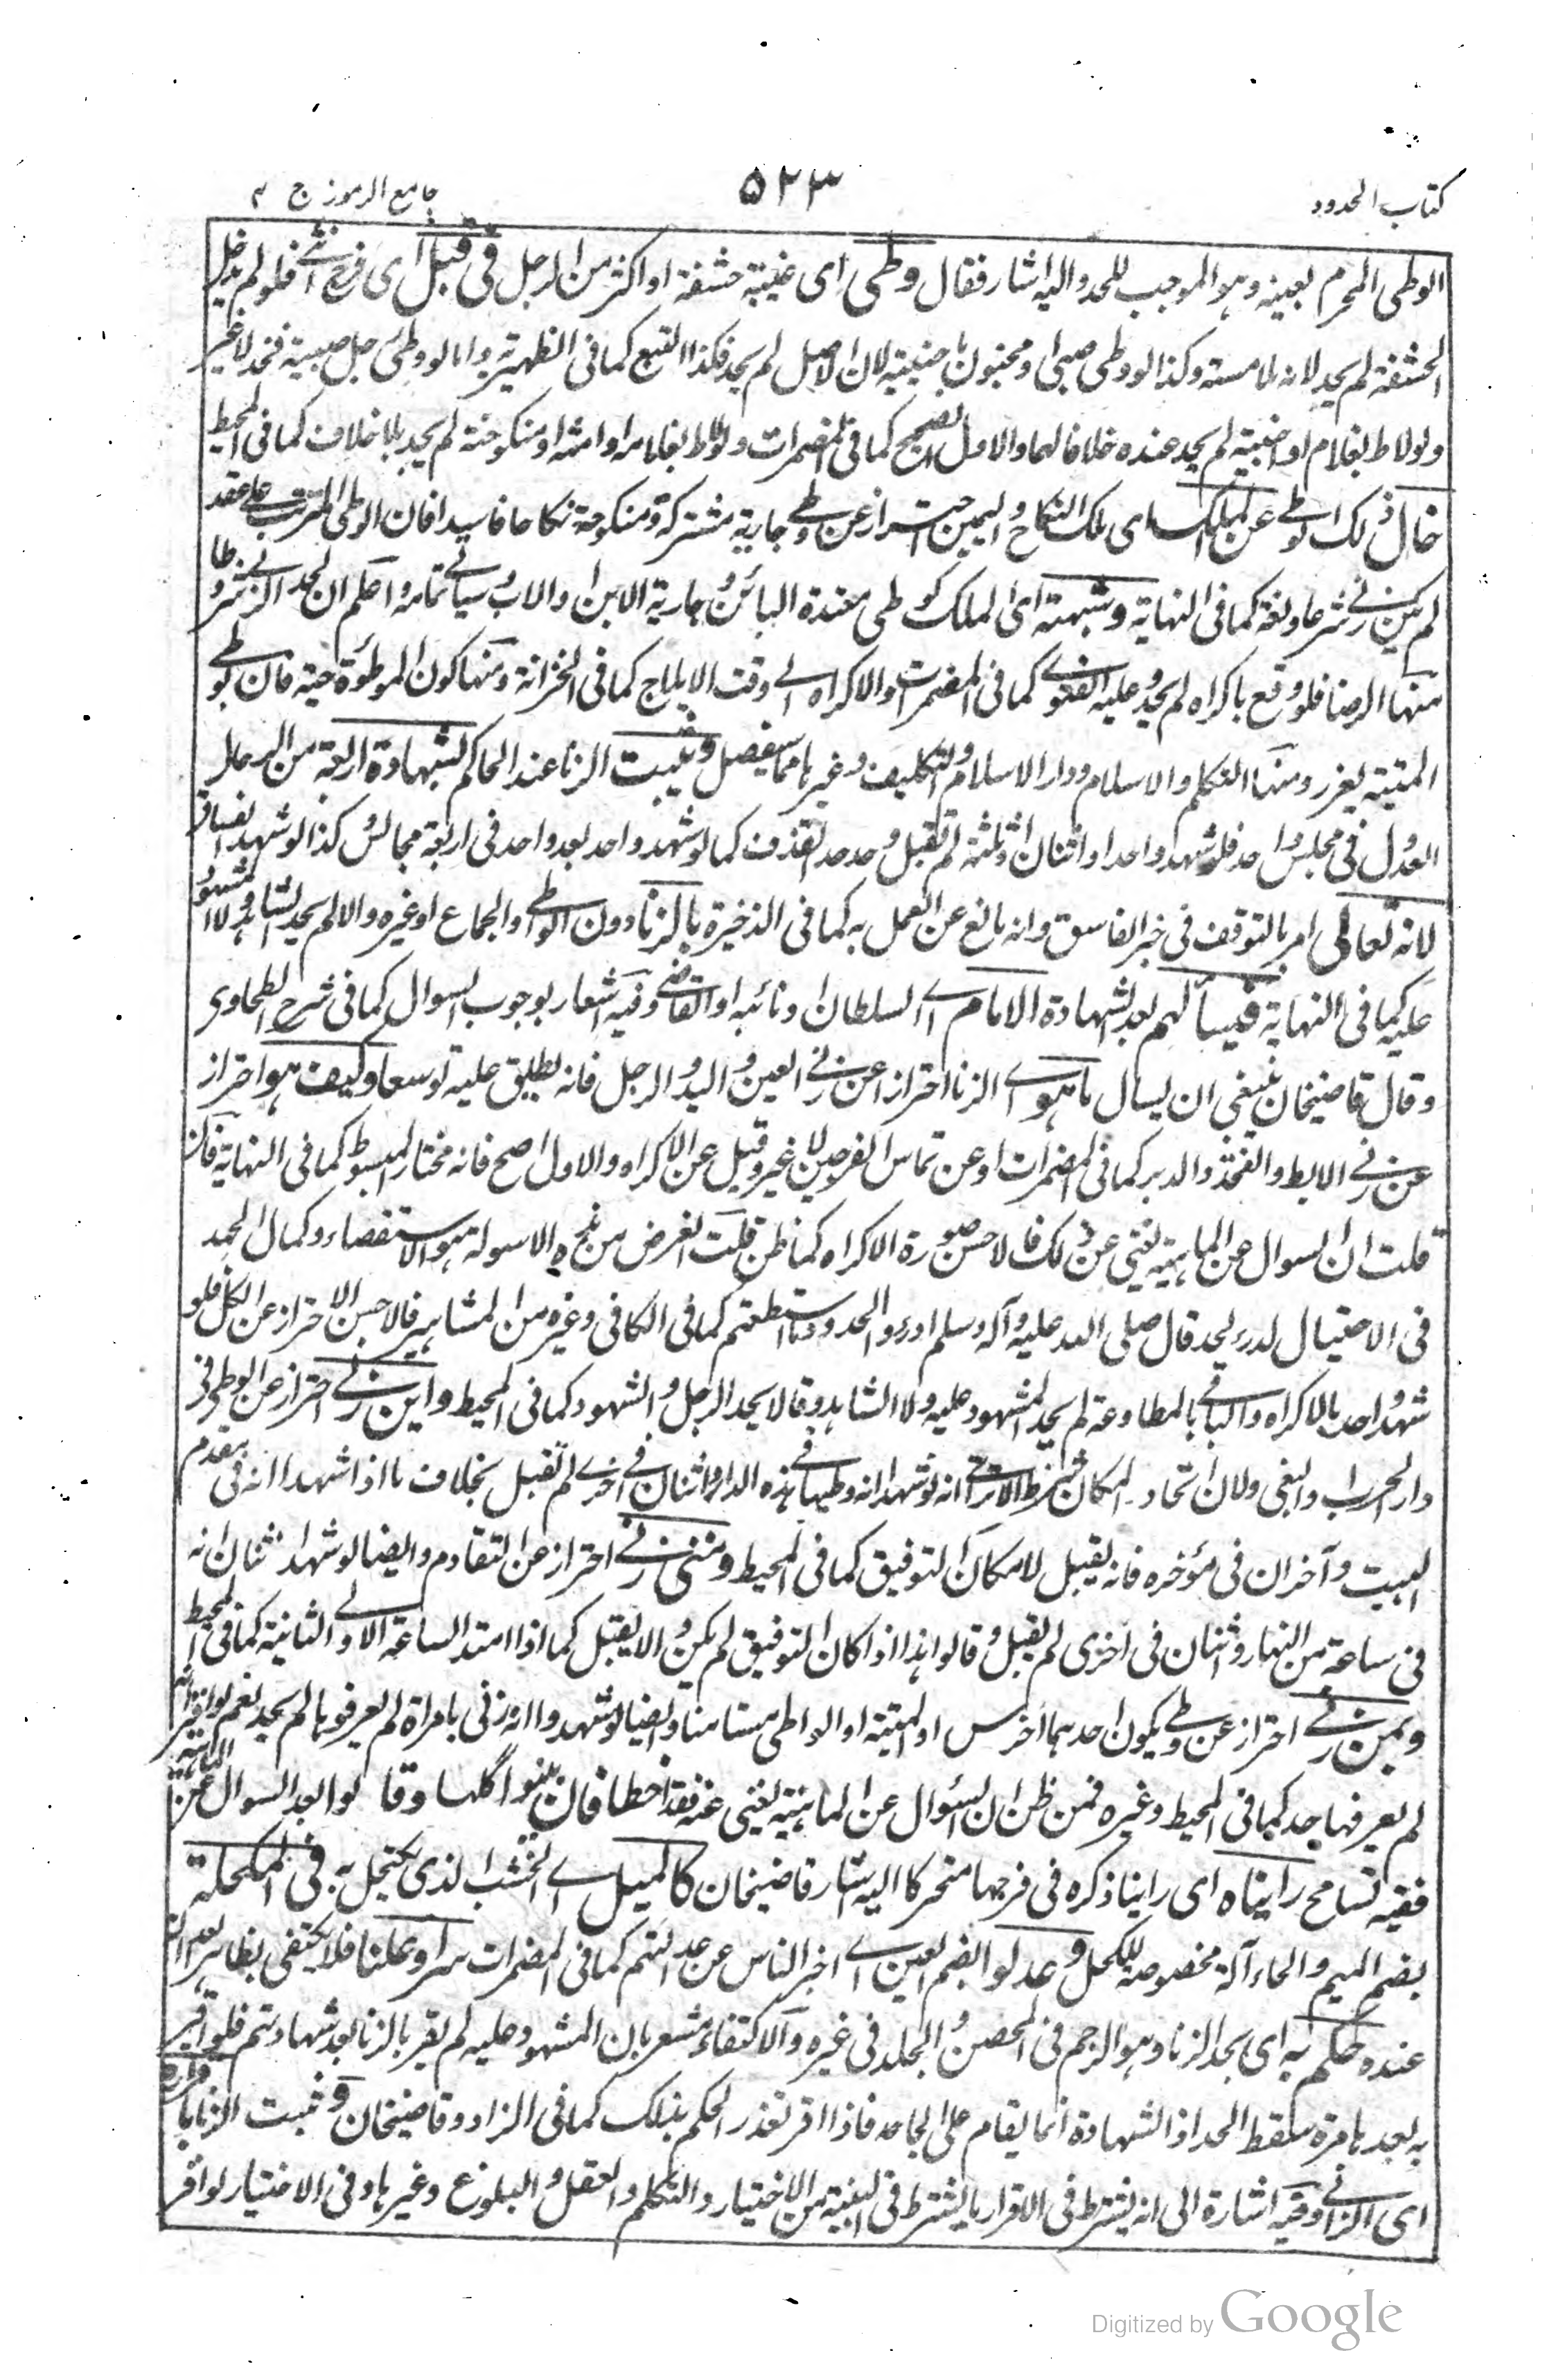 كتاب الحدود ٥٢٣ جامع الرموز ج ٢
الوطى المحرم بعينه وهو الموجب للحد واليه اشار فقال وطى اى غيبة حشفة او اكثر من الرجل فى قبل اى فرج انثى فلو لم يدخل
الحشفة لم يحد لانه ملامسته وكذا لو وطى صبى او مجنون اجنبية لان الاصل لم يحد فكذا التبع كما فى الظهيرية واما لو وطئ رجل صبية فحد لا غير
ولو لاط بغلام او اجنبية لم يحد عنده خلافا لهما والاول الصحيح كما فى المضمرات ولو لاط بغلامه او امته او منكوحته لم يحد بلا خلاف كما فى المحيط
خال ذلك الوطى عن الملك اى ملك النكاح واليمين احتراز عن وطى جارية مشتركة ومنكوحة نكاحا فاسدا فان الوطى المترتب على عقد
لم يكن زنى شرعا ولغة كما فى النهاية وشبهته اى الملك كوطى معتدة البائن وجارية الابن والاب وسياتى تمامه واعلم ان لحد الزنى شروطا
منها الرضا فلو وقع باكراه لم يحد وعليه الفتوى كما فى المضمرات والاكراه اى وقت الايلاج كما فى الخزانة ومنها كون الموطوءة حية فان لوطى
الميتة يعزر ومنها التكلم والاسلام ودار الاسلام والتكليف وغيرها مما سيفصل ويثبت الزنا عند الحاكم بشهادة اربعة من الرجال
العدول فى مجلس واحد فلو شهد واحد او اثنان او ثلثة لم تقبل وحد حد القذف كما لو شهد واحد بعد واحد فى اربعة مجالس كذا لو شهد الفساق
لانه تعالى امر بالتوقف فى خبر الفاسق وانه مانع عن العمل به كما فى الذخيرة بالزنا دون الوطى والجماع او غيره والا لم يحد الشاهد ولا المشهود
عليه كما فى النهاية فيسألهم بعد الشهادة الامام اى السلطان او نائبه او القاضى وفيه اشعار بوجوب السوال كما فى شرح الطحاوى
وقال قاضيخان ينبغى ان يسال ما هو اى الزنا احترازا عن زنى العين واليد والرجل فانه يطلق عليه توسعا وكيف هو احتراز
عن زنى الابط والفخذ والدبر كما فى المضمرات او عن تماس الفرجين لا غير وقيل عن الاكراه والاول اصح فانه مختار المبسوط كما فى النهاية فان
قلت ان السوال عن الماهية يغنى عن ذلك فالاحسن صورة الاكراه كما ظن قلت الغرض من هذه الاسولة هو الاستقصاء وكمال الجهد
فى الاحتيال لدرء الحد قال صلى الله عليه وآله وسلم ادرءوا الحدود ما استطعتم كما فى الكافى وغيره من المشاهير فالاحسن الاحتراز عن الكل فلو
شهد واحد بالاكراه والباقى بالمطاوعة لم يحد المشهود عليه ولا الشاهد وقالا يحد الرجل والشهود كما فى المحيط واين زنى احتراز عن الوطى فى
دار الحرب والبغى ولان اتحاد المكان شرط الا ترى انه لو شهد انه وطيها فى هذه الدار واثنان فى اخرى لم تقبل بخلاف ما اذا شهدا انه فى مقدم
البيت وآخران فى مؤخره فانه يقبل لامكان التوفيق كما فى المحيط ومتى زنى احتراز عن التقادم وايضا لو شهد اثنان انه
فى ساعة من النهار واثنان فى اخرى لم يقبل وقالوا هذا اذا كان التوفيق لم يكن والا يقبل كما اذا امتد الساعة الاولى الى الثانية كما فى المحيط
وبمن زنى احتراز عن وطى يكون احدهما اخرس او الميتة او الواطى مستامنا وايضا لو شهدوا انه زنى بامراة لم يعرفوها لم يحد نعم لو اقر انه
لم يعرفها حد كما فى المحيط وغيره فمن ظن ان السؤال عن الماهية يغنى عنه فقد اخطا فان بينوا كلها وقالوا بعد السوال عن الماهية
ففيه تسامح رايناه اى راينا ذكره فى فرجها متحركا اليه اشار قاضيخان كالميل اى الخشب الذى يكتحل به فى المكحلة
بضم الميم والحاء آلة مخصوصة للكحل وعدلوا بضم العين اى اخبر الناس عن عدالتهم كما فى المضمرات سرا وعلنا فلا يكتفى بظاهر العدالة
عنده وحكم به اى بحد الزنا وهو الرجم فى المحصن والجلد فى غيره والاكتفاء مشعر بان المشهود عليه لم يقر بالزنا بعد شهادتهم فلو اقر
به بعدها مرة سقط الحد اذ الشهادة انما يقام على الجاحد فاذا اقر تعذر الحكم بذلك كما فى الزاد وقاضيخان ويثبت الزنا باقراره
اى الزانى وفيه اشارة الى انه يشترط فى الاقرار ما يشترط فى البينة من الاختيار والتكلم والعقل والبلوغ وغيرها وفى الاختيار لو اقر
Digitized by Google